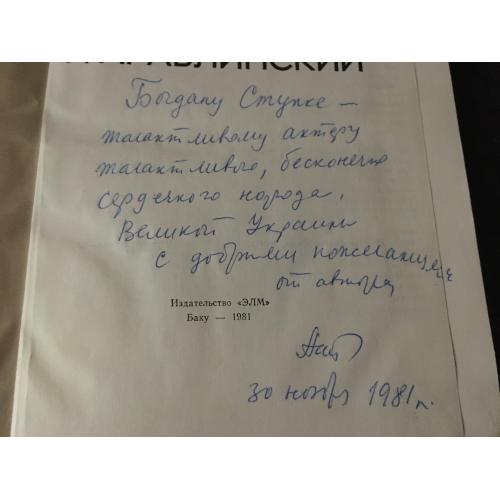 Богдану Ступке —
талантливому актеру
талантливого, бесконечно
сердечного народа,
Великой Украины
с добрыми пожеланиями
от автора
Издательство «ЭЛМ»
Баку — 1981
30 ноября 1981 г.